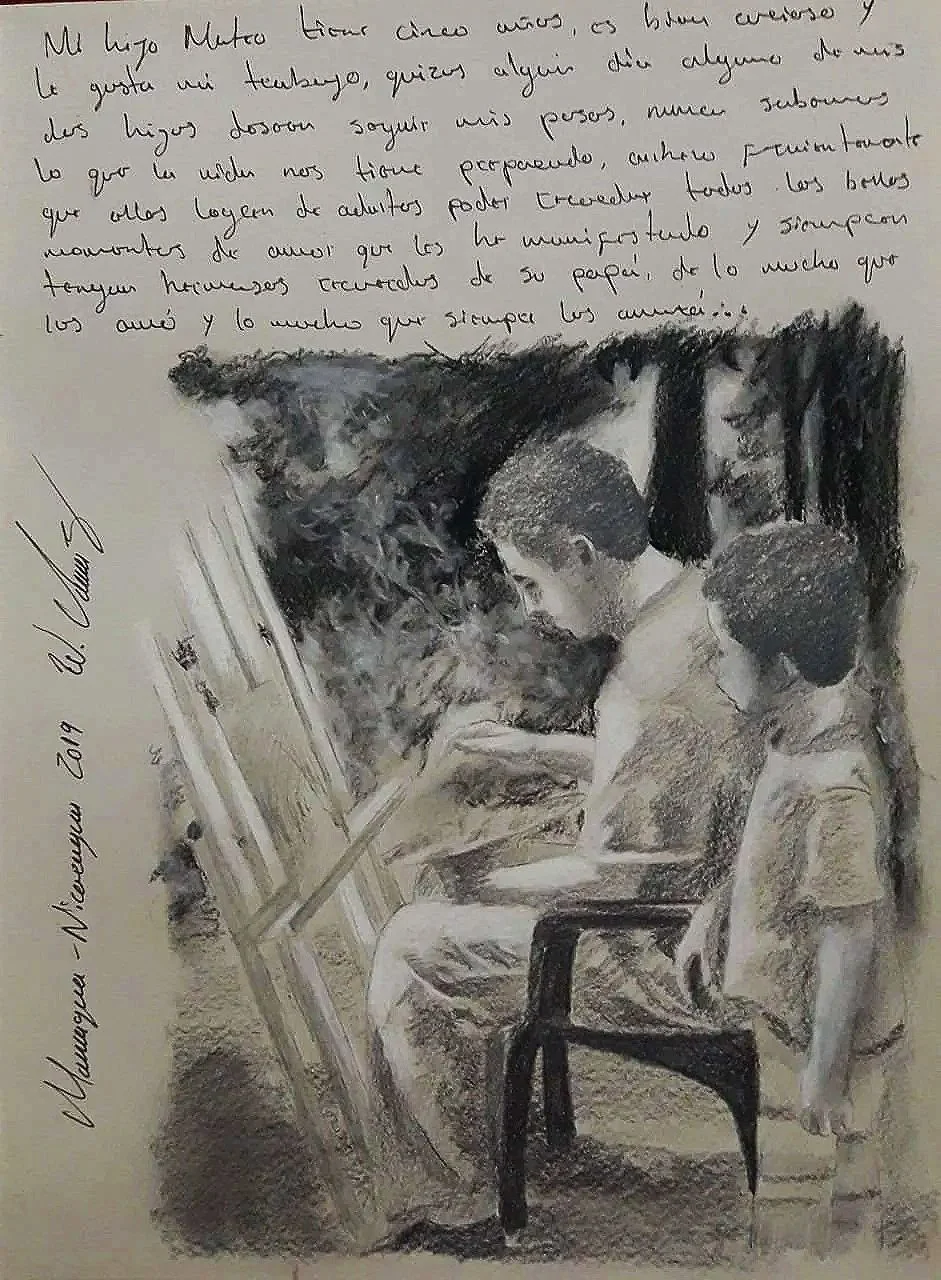 Mi hijo Mateo tiene cinco años, es bien curioso y
le gusta mi trabajo, quizas algun dia alguno de mis
dos hijos desean seguir mis pasos, nunca sabemos
lo que la vida nos tiene preparando, anhelo fervientemente
que ellos logren de adultos poder recordar todos los bellos
momentos de amor que les he manifestado y siempre
tengan hermosos recuerdos de su papá, de lo mucho que
los amé y lo mucho que siempre los amaré...
Managua - Nicaragua 2019 W.